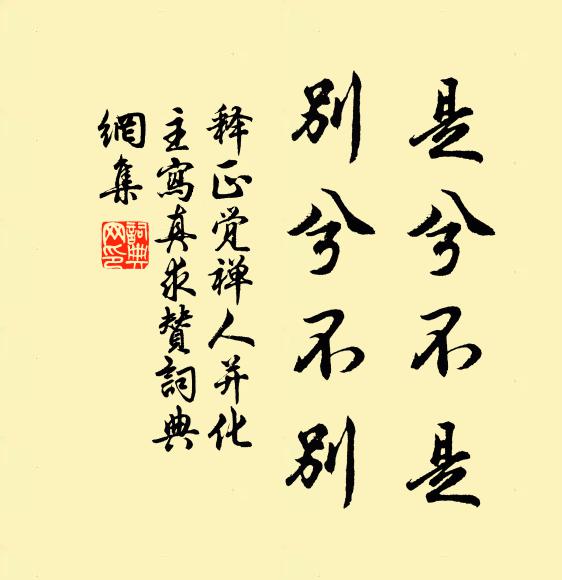 是兮不是
别兮不别
释正觉禅人并化
主寫真求贊詞典
網集
詞典网印